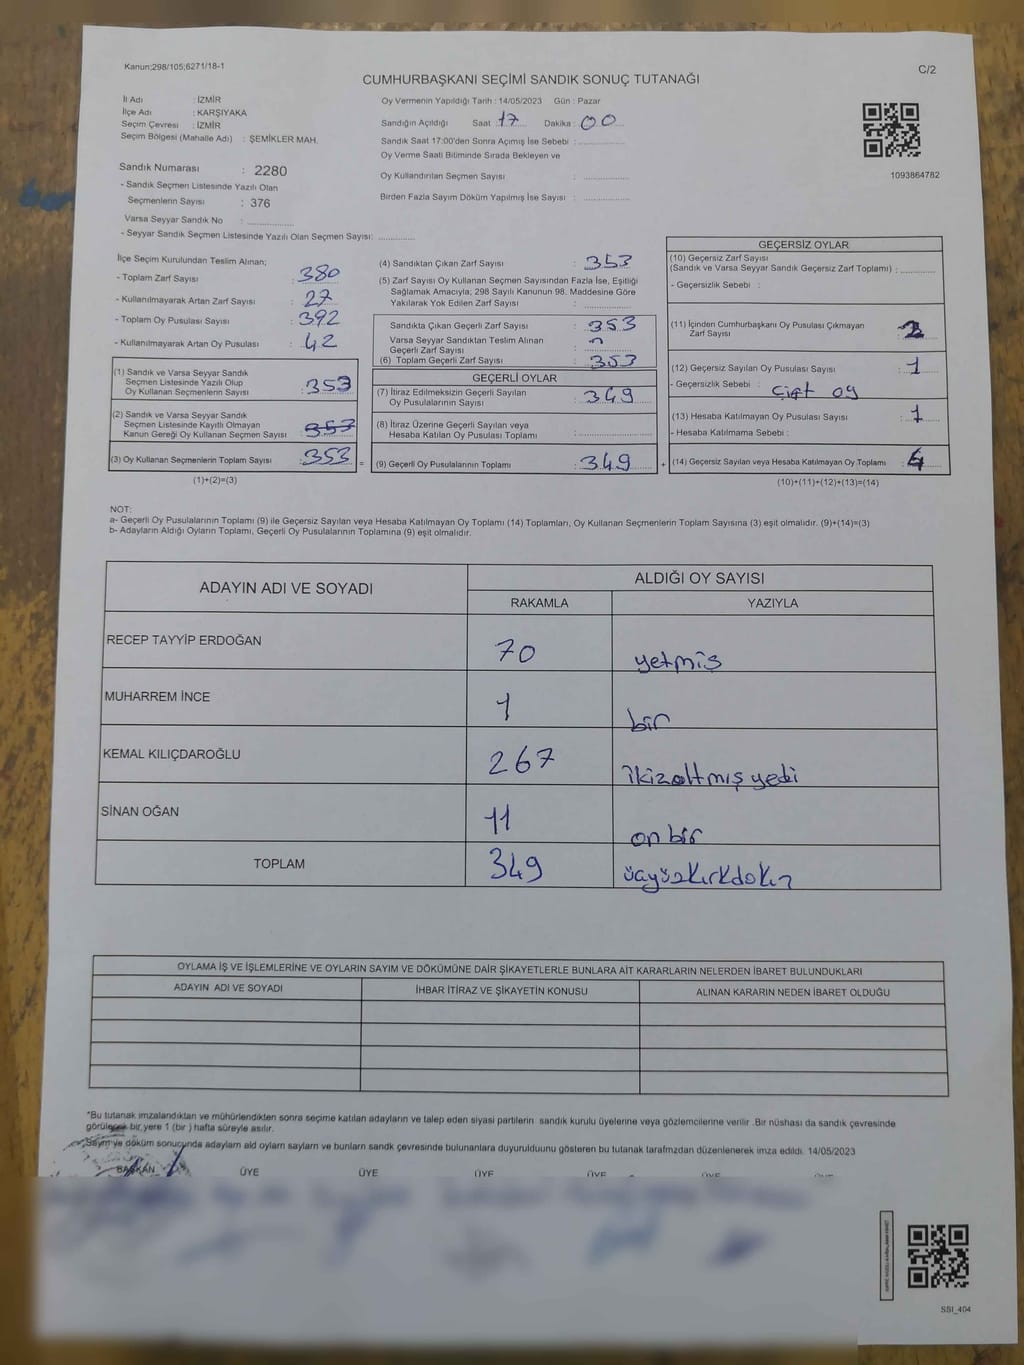 Kanun:298/105;6271/18-1
C/2
CUMHURBAŞKANI SEÇİMİ SANDIK SONUÇ TUTANAĞI
İl Adı : İZMİR
İlçe Adı : KARŞIYAKA
Seçim Çevresi : İZMİR
Seçim Bölgesi (Mahalle Adı) : ŞEMİKLER MAH.
Sandık Numarası : 2280
- Sandık Seçmen Listesinde Yazılı Olan
Seçmenlerin Sayısı : 376
Varsa Seyyar Sandık No : ..............
- Seyyar Sandık Seçmen Listesinde Yazılı Olan Seçmen Sayısı: ..............
Oy Vermenin Yapıldığı Tarih : 14/05/2023 Gün : Pazar
Sandığın Açıldığı Saat 17 Dakika : 00
Sandık Saat 17:00'den Sonra Açımış İse Sebebi : ..............
Oy Verme Saati Bitiminde Sırada Bekleyen ve
Oy Kullandırılan Seçmen Sayısı : ..............
Birden Fazla Sayım Döküm Yapılmış İse Sayısı : ..............
1093864782
İlçe Seçim Kurulundan Teslim Alınan;
- Toplam Zarf Sayısı : 380
- Kullanılmayarak Artan Zarf Sayısı : 27
- Toplam Oy Pusulası Sayısı : 392
- Kullanılmayarak Artan Oy Pusulası : 42
(1) Sandık ve Varsa Seyyar Sandık
Seçmen Listesinde Yazılı Olup
Oy Kullanan Seçmen Sayısı : 353
(2) Sandık ve Varsa Seyyar Sandık
Seçmen Listesinde Kayıtlı Olmayan
Kanun Gereği Oy Kullanan Seçmen Sayısı : 353
(3) Oy Kullanan Seçmenlerin Toplam Sayısı : 353
(1)+(2)=(3)
(4) Sandıktan Çıkan Zarf Sayısı : 353
(5) Zarf Sayısı Oy Kullanan Seçmen Sayısından Fazla İse, Eşitliği
Sağlamak Amacıyla; 298 Sayılı Kanunun 98. Maddesine Göre
Yakılarak Yok Edilen Zarf Sayısı : ..............
Sandıkta Çıkan Geçerli Zarf Sayısı : 353
Varsa Seyyar Sandıktan Teslim Alınan
Geçerli Zarf Sayısı :
(6) Toplam Geçerli Zarf Sayısı : 353
GEÇERLİ OYLAR
(7) İtiraz Edilmeksizin Geçerli Sayılan
Oy Pusulalarının Sayısı : 349
(8) İtiraz Üzerine Geçerli Sayılan veya
Hesaba Katılan Oy Pusulası Toplamı : ..............
(9) Geçerli Oy Pusulalarının Toplamı : 349
=
+
GEÇERSİZ OYLAR
(10) Geçersiz Zarf Sayısı
(Sandık ve Varsa Seyyar Sandık Geçersiz Zarf Toplamı) : ..............
- Geçersizlik Sebebi :
(11) İçinden Cumhurbaşkanı Oy Pusulası Çıkmayan
Zarf Sayısı : 2
(12) Geçersiz Sayılan Oy Pusulası Sayısı : 1
- Geçersizlik Sebebi : Çift oy
(13) Hesaba Katılmayan Oy Pusulası Sayısı : 1
- Hesaba Katılmama Sebebi :
(14) Geçersiz Sayılan veya Hesaba Katılmayan Oy Toplamı : 4
(10)+(11)+(12)+(13)=(14)
NOT:
a- Geçerli Oy Pusulalarının Toplamı (9) ile Geçersiz Sayılan veya Hesaba Katılmayan Oy Toplamı (14) Toplamları, Oy Kullanan Seçmenlerin Toplam Sayısına (3) eşit olmalıdır. (9)+(14)=(3)
b- Adayların Aldığı Oyların Toplamı, Geçerli Oy Pusulalarının Toplamına (9) eşit olmalıdır.
ADAYIN ADI VE SOYADI
ALDIĞI OY SAYISI
RAKAMLA YAZIYLA
RECEP TAYYİP ERDOĞAN 70 yetmiş
MUHARREM İNCE 1 bir
KEMAL KILIÇDAROĞLU 267 ikizaltmışyedi
SİNAN OĞAN 11 on bir
TOPLAM 349 üçyüzkırkdokuz
OYLAMA İŞ VE İŞLEMLERİNE VE OYLARIN SAYIM VE DÖKÜMÜNE DAİR ŞİKAYETLERLE BUNLARA AİT KARARLARIN NELERDEN İBARET BULUNDUKLARI
ADAYIN ADI VE SOYADI İHBAR İTİRAZ VE ŞİKAYETİN KONUSU ALINAN KARARIN NEDEN İBARET OLDUĞU
*Bu tutanak imzalandıktan ve mühürlendikten sonra seçime katılan adayların ve talep eden siyasi partilerin sandık kurulu üyelerine veya gözlemcilerine verilir .Bir nüshası da sandık çevresinde
görülecek bir yere 1 (bir ) hafta süreyle asılır.
Sayım ve döküm sonucunda adayların ald oyların sayların ve bunların sandk çevresinde bulunanlara duyurulduunu gösteren bu tutanak tarafmzdan düzenlenerek imza edildi. 14/05/2023
BAŞKAN ÜYE ÜYE ÜYE ÜYE ÜYE ÜYE
SSI_404